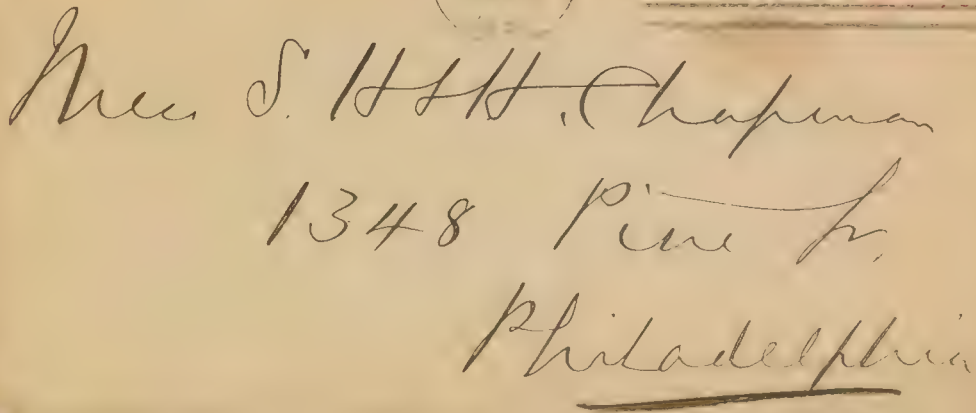 S. H & H. Chapman
1348 Pine St.
Philadelphia